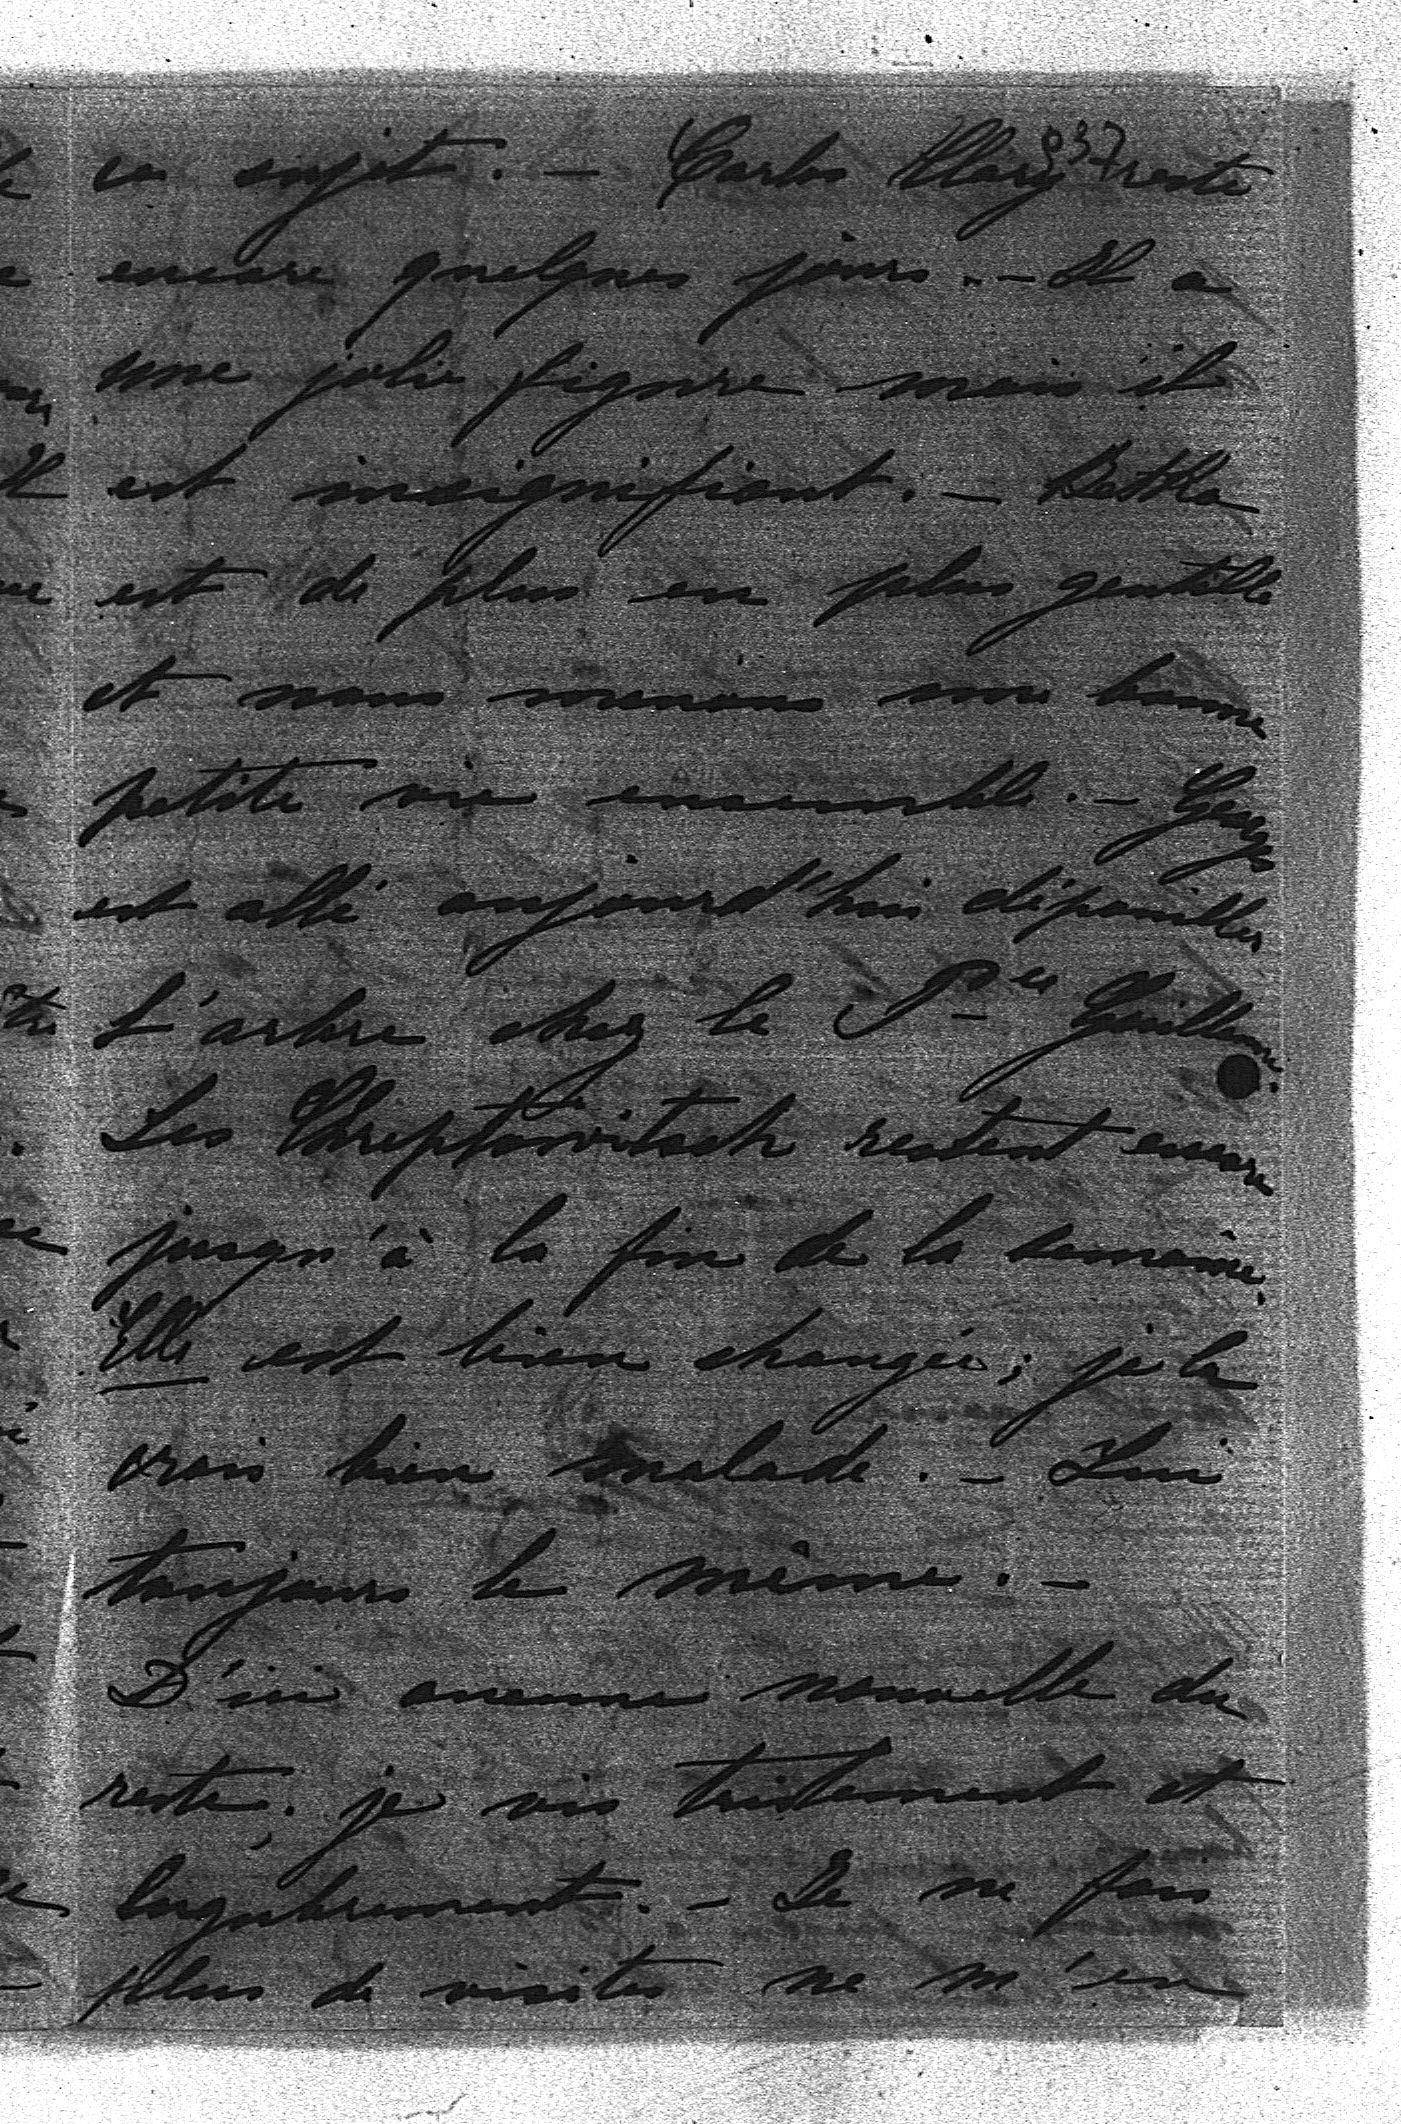 937
ce sujet. — Carlos Clary reste
encore quelques jours. — Il a
une jolie figure mais il
est insignifiant. — Betka
est de plus en plus gentille
et nous menons une bonne
petite vie ensemble. — Georges
est allé aujourd'hui dépouiller
l'arbre chez le Pce Guillaume.
Les Chreptowitsch restent encore
jusqu'à la fin de la semaine.
Elle est bien changée; je la
crois bien malade. — Lui
toujours le même. —
D'ici aucune nouvelle du
reste. je vis tristement et
lugubrement. — Je ne fais
plus de visites ne m'en